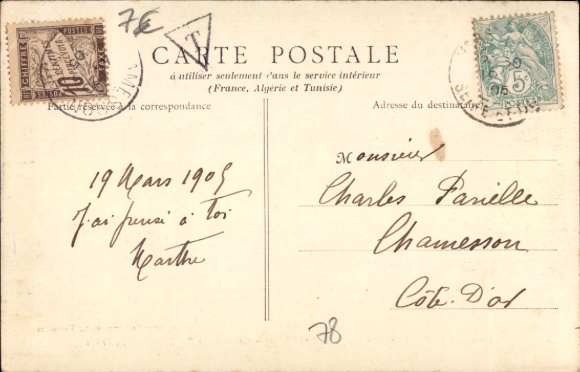 7€
T
CARTE POSTALE
à utiliser seulement dans le service intérieur
(France, Algérie et Tunisie)
Partie réservée à la correspondance
Adresse du destinataire
19 Mars 1905
J'ai pensé à toi
Marthe
Monsieur
Charles Parielle
Chamesson
Côte-D'or
78
CHIFFRE
POSTES
TAXE
10
5c